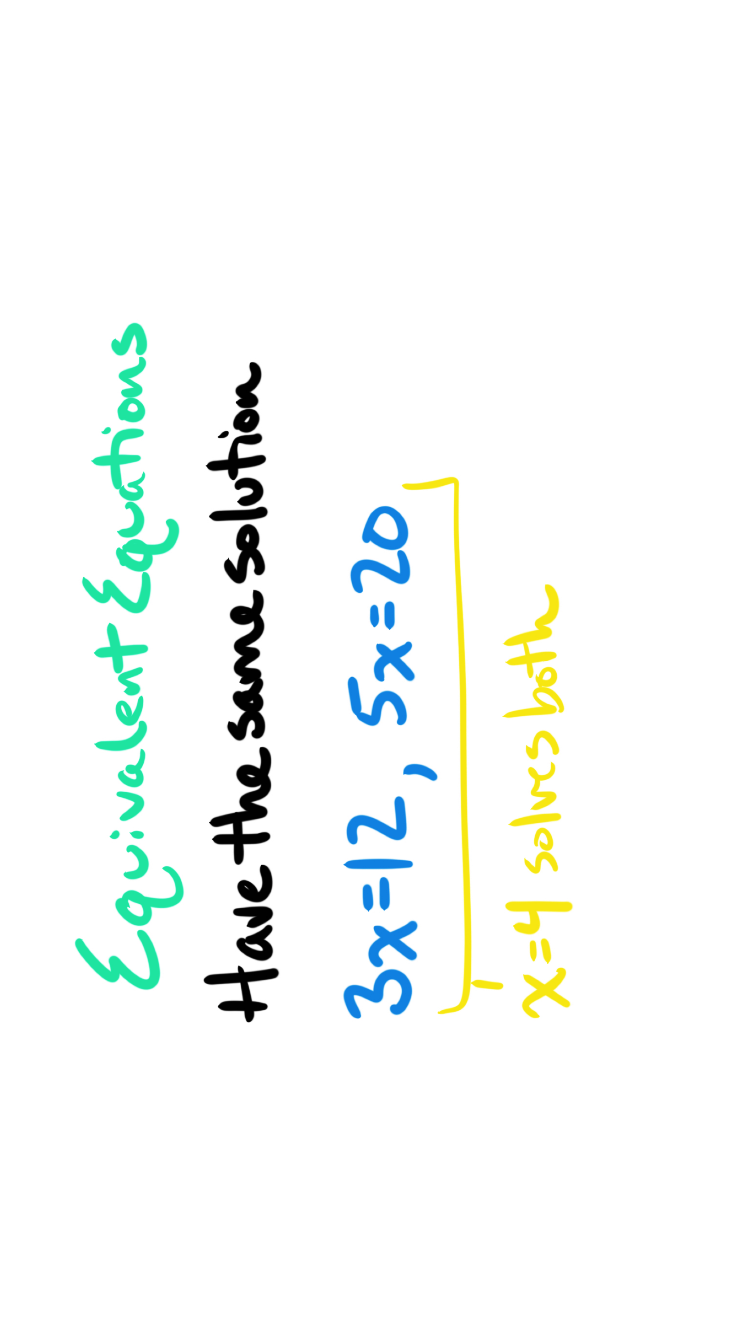 Equivalent Equations
Have the same solution
3x=12, 5x=20
x=4 solves both